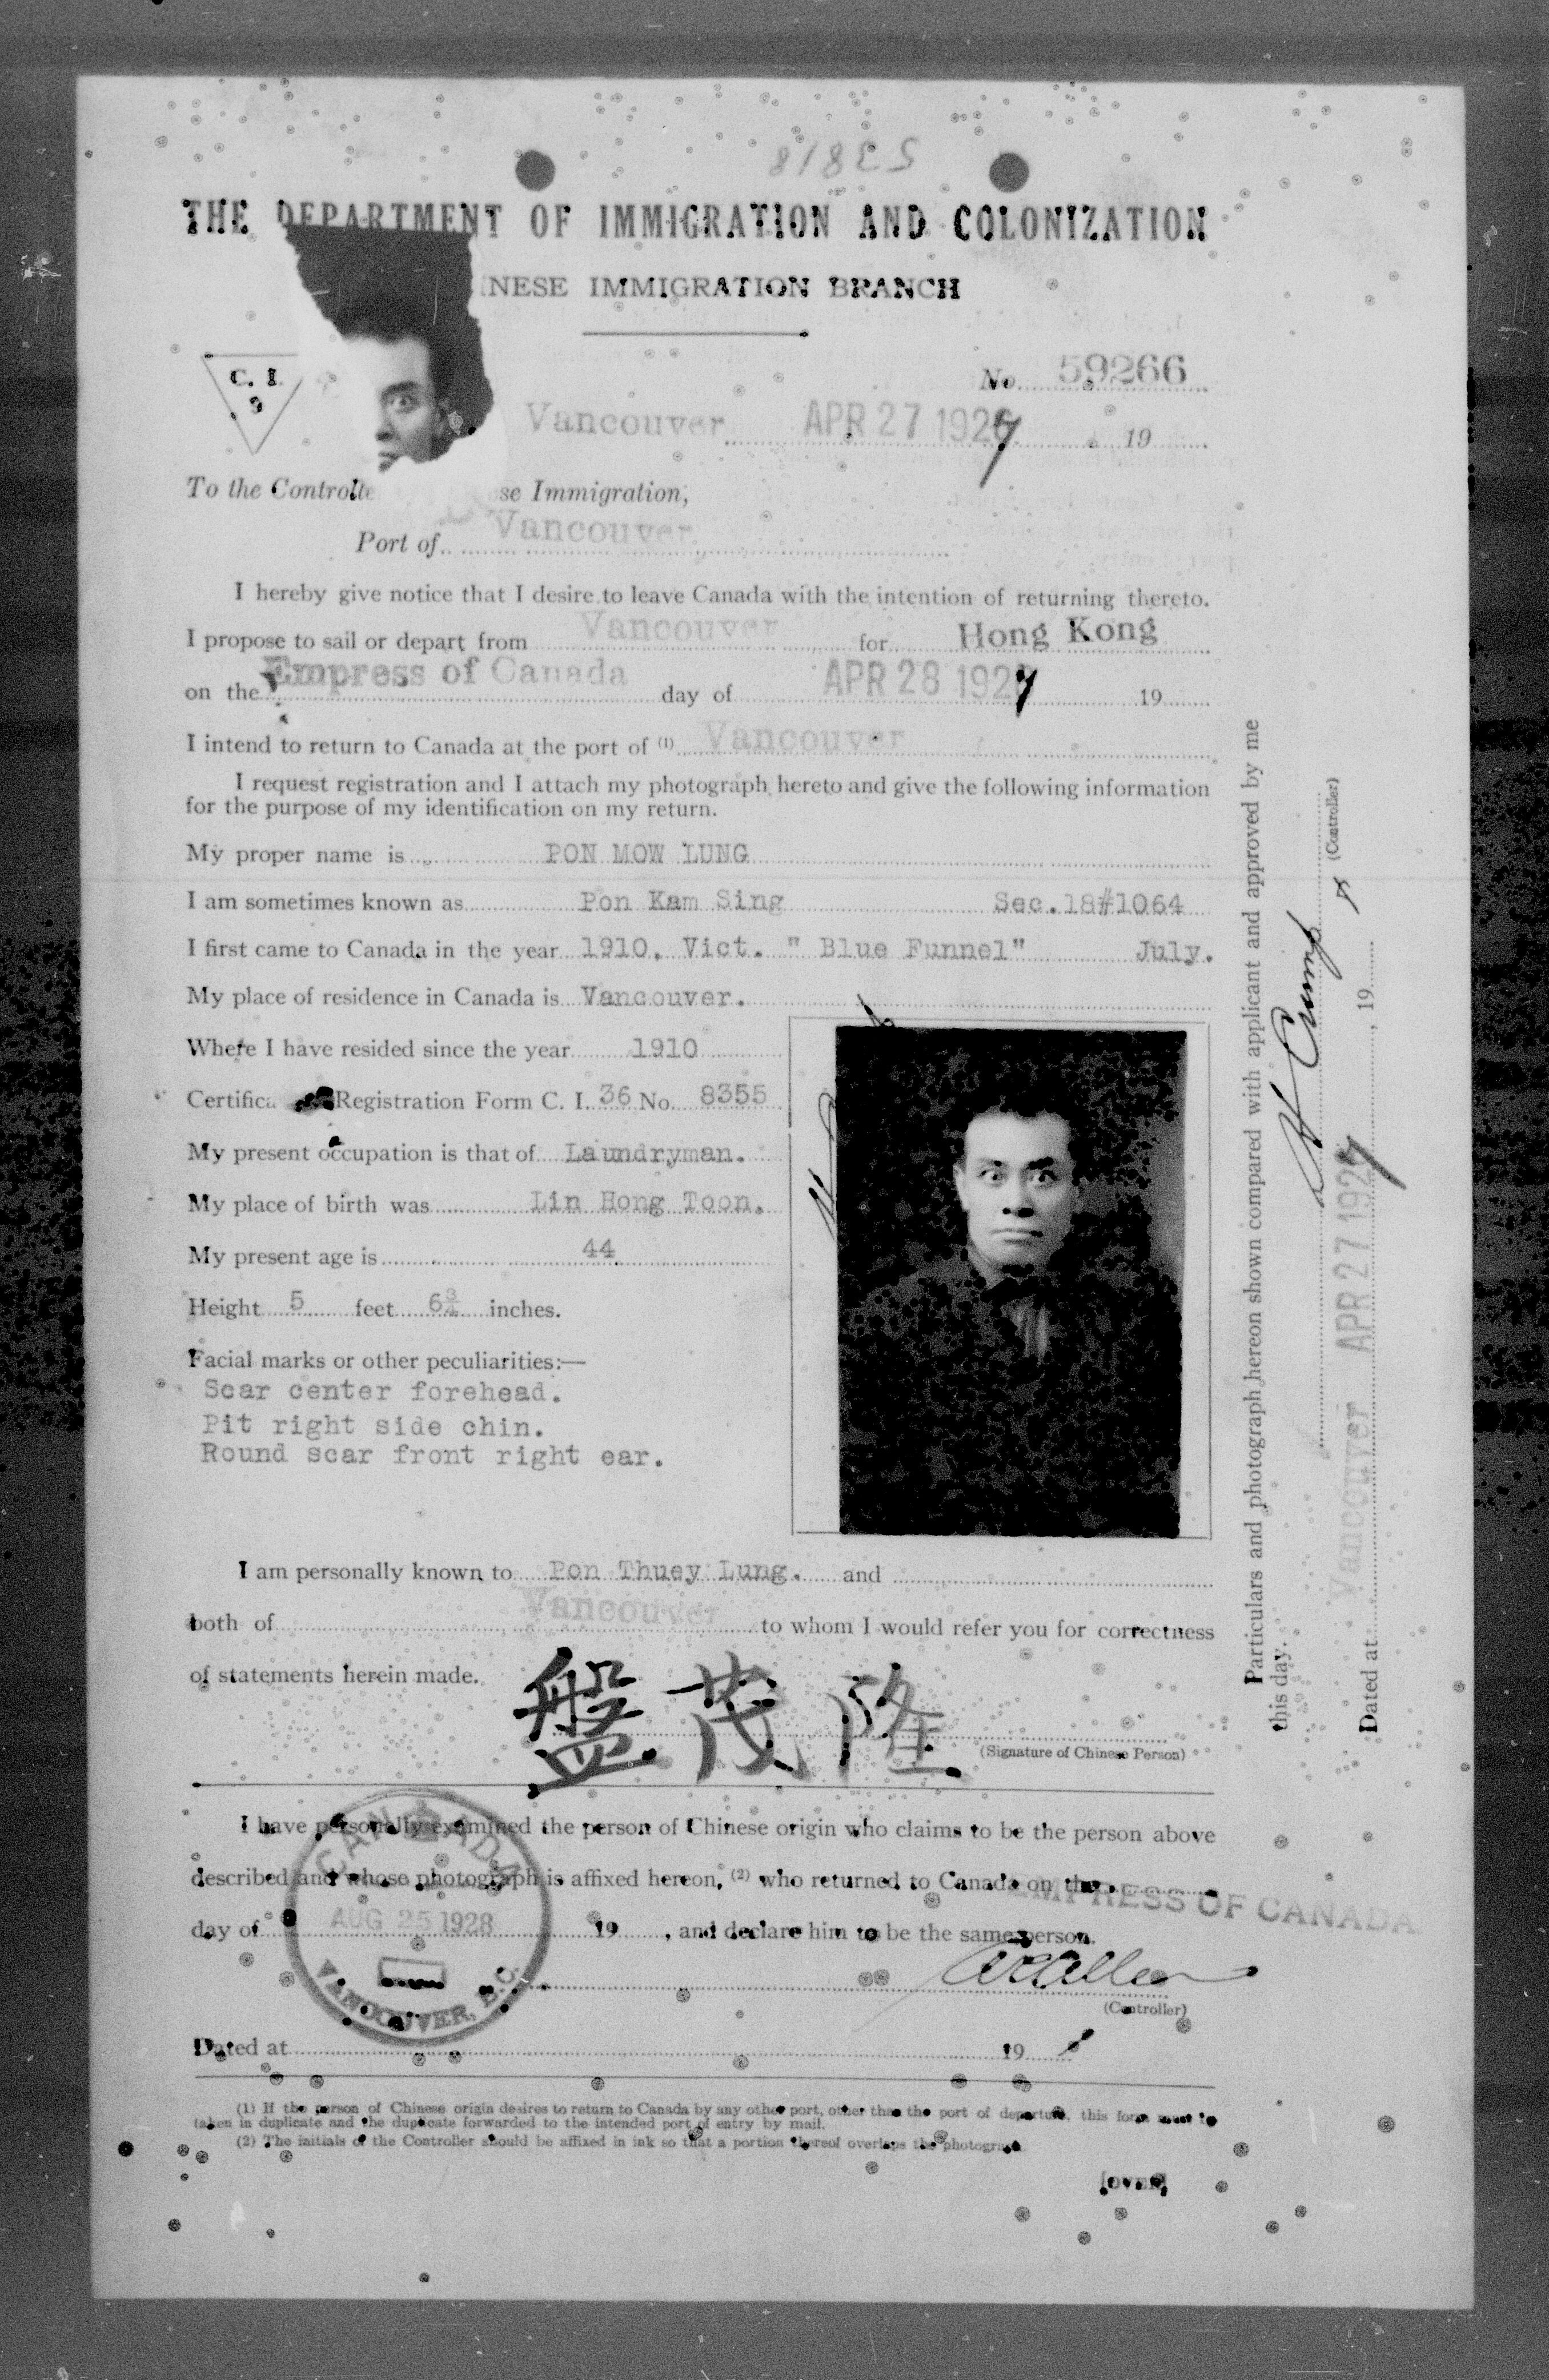 53818
THE DEPARTMENT OF IMMIGRATION AND COLONIZATION
INESE IMMIGRATION BRANCH
C. I.
9
No. 59266
Vancouver APR 27 1927 19
To the Controlle se Immigration,
Port of Vancouver
I hereby give notice that I desire to leave Canada with the intention of returning thereto.
I propose to sail or depart from Vancouver for Hong Kong
on the Empress of Canada day of APR 28 1927 19
I intend to return to Canada at the port of (1) Vancouver
I request registration and I attach my photograph hereto and give the following information
for the purpose of my identification on my return.
My proper name is PON MOW LUNG
I am sometimes known as Pon Kam Sing Sec.18#1064
I first came to Canada in the year 1910, Vict. " Blue Funnel" July.
My place of residence in Canada is Vancouver.
Where I have resided since the year 1910
Certifica Registration Form C. I. 36 No. 8355
My present occupation is that of Laundryman.
My place of birth was Lin Hong Toon.
My present age is 44
Height 5 feet 6¾ inches.
Facial marks or other peculiarities:—
Scar center forehead.
Pit right side chin.
Round scar front right ear.
I am personally known to Pon Thuey Lung. and
both of Vancouver to whom I would refer you for correctness
of statements herein made.
盤茂隆
(Signature of Chinese Person)
I have personally examined the person of Chinese origin who claims to be the person above
described and whose photograph is affixed hereon, (2) who returned to Canada on the EMPRESS OF CANADA
day of 19 , and declare him to be the same person.
CANADA
AUG 25 1928
VANCOUVER, B.C.
(Controller)
Dated at 19
(1) If the person of Chinese origin desires to return to Canada by any other port, other than the port of departure, this form must be
taken in duplicate and the duplicate forwarded to the intended port of entry by mail.
(2) The initials of the Controller should be affixed in ink so that a portion thereof overlaps the photograph.
[OVER]
Particulars and photograph hereon shown compared with applicant and approved by me
this day.
(Controller)
Dated at Vancouver APR 27 1927 , 19